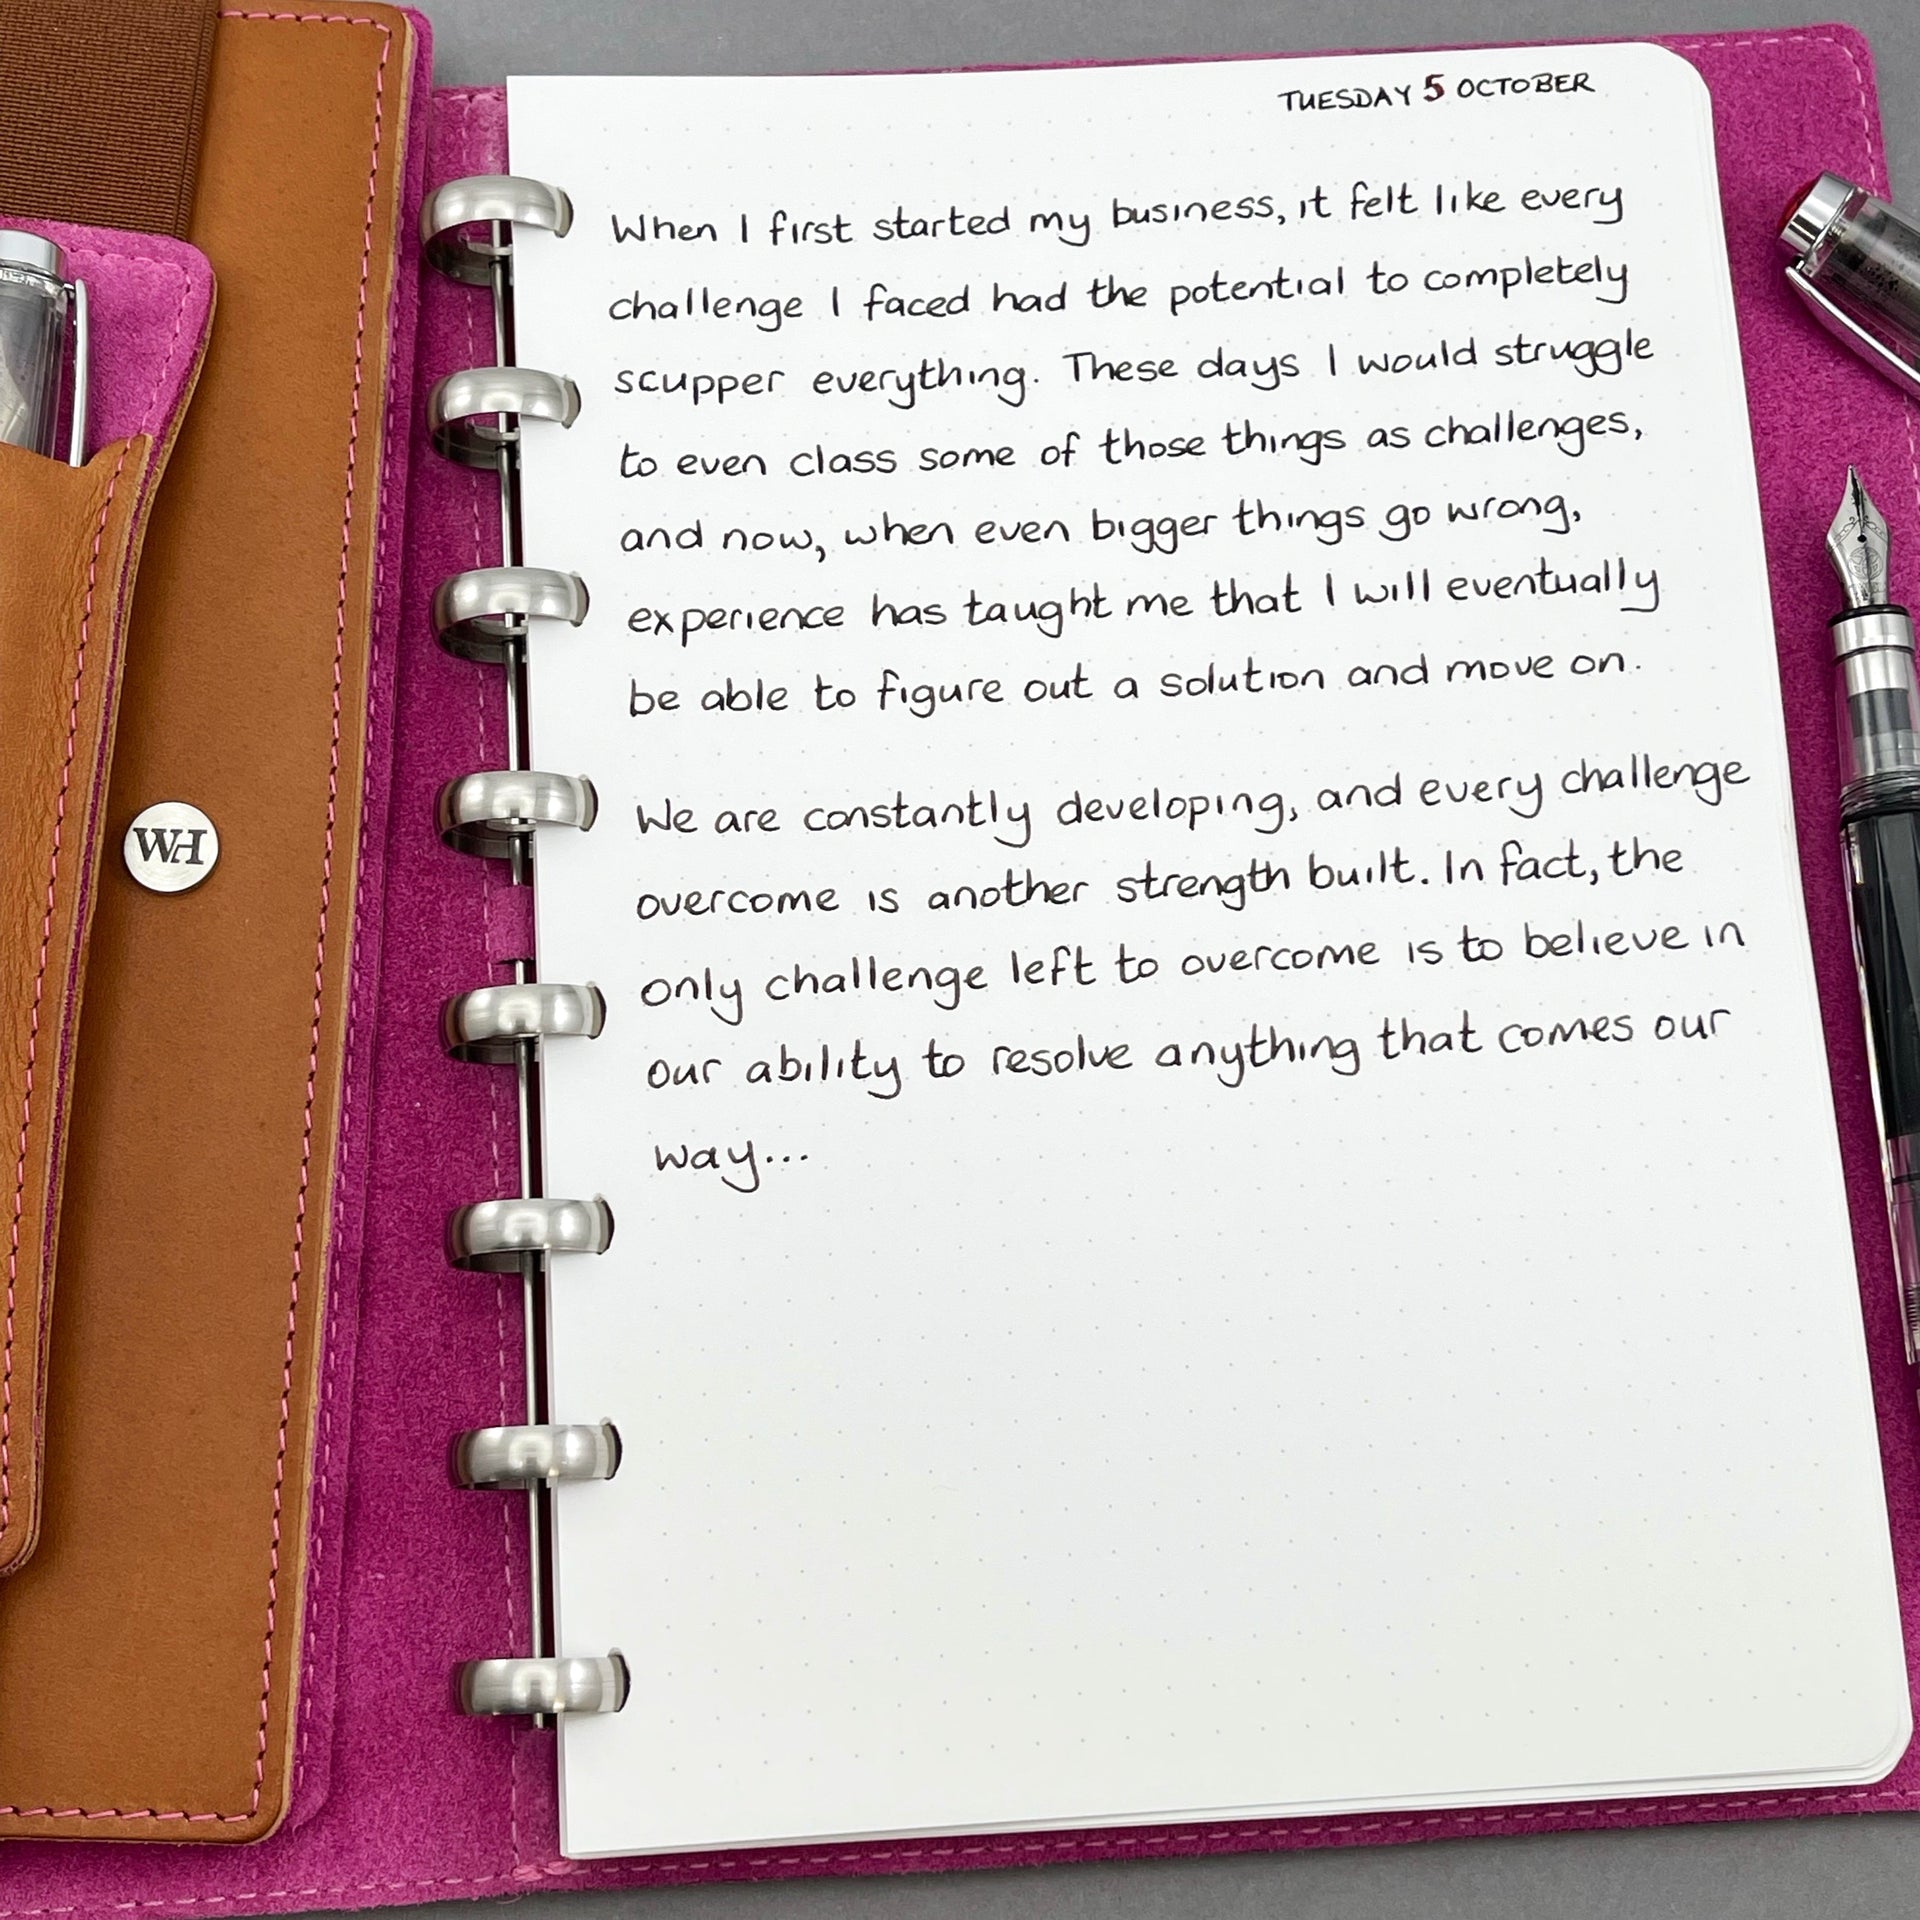 TUESDAY 5 OCTOBER
When I first started my business, it felt like every
challenge I faced had the potential to completely
scupper everything. These days I would struggle
to even class some of those things as challenges,
and now, when even bigger things go wrong,
experience has taught me that I will eventually
be able to figure out a solution and move on.
We are constantly developing, and every challenge
overcome is another strength built. In fact, the
only challenge left to overcome is to believe in
our ability to resolve anything that comes our
way...
WH